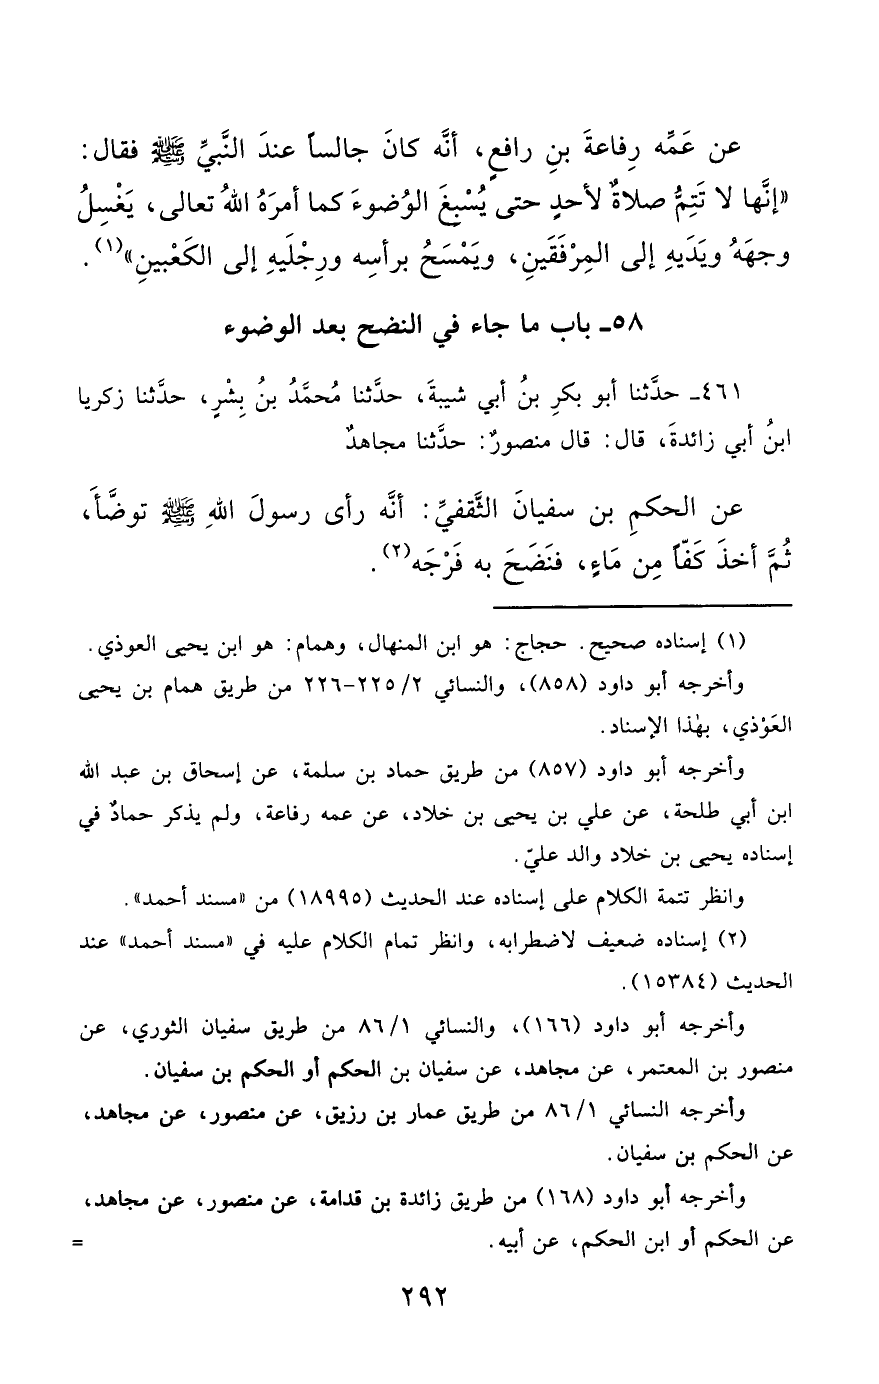 عن عَمِّه رِفاعةَ بنِ رافعٍ، أنَّه كانَ جالساً عندَ النَّبيِّ ﷺ فقال:
«إنَّها لا تَتِمُّ صلاةٌ لأحدٍ حتى يُسْبِغَ الوُضوءَ كما أمرَهُ اللهُ تعالى، يَغْسِلُ
وجهَهُ ويَدَيهِ إلى المِرْفَقَينِ، ويَمْسَحُ برأسِه ورِجْلَيهِ إلى الكَعْبينِ»(١).
٥٨- باب ما جاء في النضح بعد الوضوء
٤٦١- حدَّثنا أبو بكرِ بنُ أبي شيبةَ، حدَّثنا مُحمَّدُ بنُ بِشْرٍ، حدَّثنا زكريا
ابنُ أبي زائدةَ، قال: قال منصورٌ: حدَّثنا مجاهدٌ
عن الحكمِ بن سفيانَ الثَّقفيِّ: أنَّه رأى رسولَ اللهِ ﷺ توضَّأَ،
ثُمَّ أخذَ كَفّاً مِن مَاءٍ، فنَضَحَ به فَرْجَه(٢).
(١) إسناده صحيح. حجاج: هو ابن المنهال، وهمام: هو ابن يحيى العوذي.
وأخرجه أبو داود (٨٥٨)، والنسائي ٢/ ٢٢٥-٢٢٦ من طريق همام بن يحيى
العَوْذي، بهٰذا الإسناد.
وأخرجه أبو داود (٨٥٧) من طريق حماد بن سلمة، عن إسحاق بن عبد الله
ابن أبي طلحة، عن علي بن يحيى بن خلاد، عن عمه رفاعة، ولم يذكر حمادٌ في
إسناده يحيى بن خلاد والد عليّ.
وانظر تتمة الكلام على إسناده عند الحديث (١٨٩٩٥) من «مسند أحمد».
(٢) إسناده ضعيف لاضطرابه، وانظر تمام الكلام عليه في «مسند أحمد» عند
الحديث (١٥٣٨٤).
وأخرجه أبو داود (١٦٦)، والنسائي ١/ ٨٦ من طريق سفيان الثوري، عن
منصور بن المعتمر، عن مجاهد، عن سفيان بن الحكم أو الحكم بن سفيان.
وأخرجه النسائي ١/ ٨٦ من طريق عمار بن رزيق، عن منصور، عن مجاهد،
عن الحكم بن سفيان.
وأخرجه أبو داود (١٦٨) من طريق زائدة بن قدامة، عن منصور، عن مجاهد،
عن الحكم أو ابن الحكم، عن أبيه. =
٢٩٢